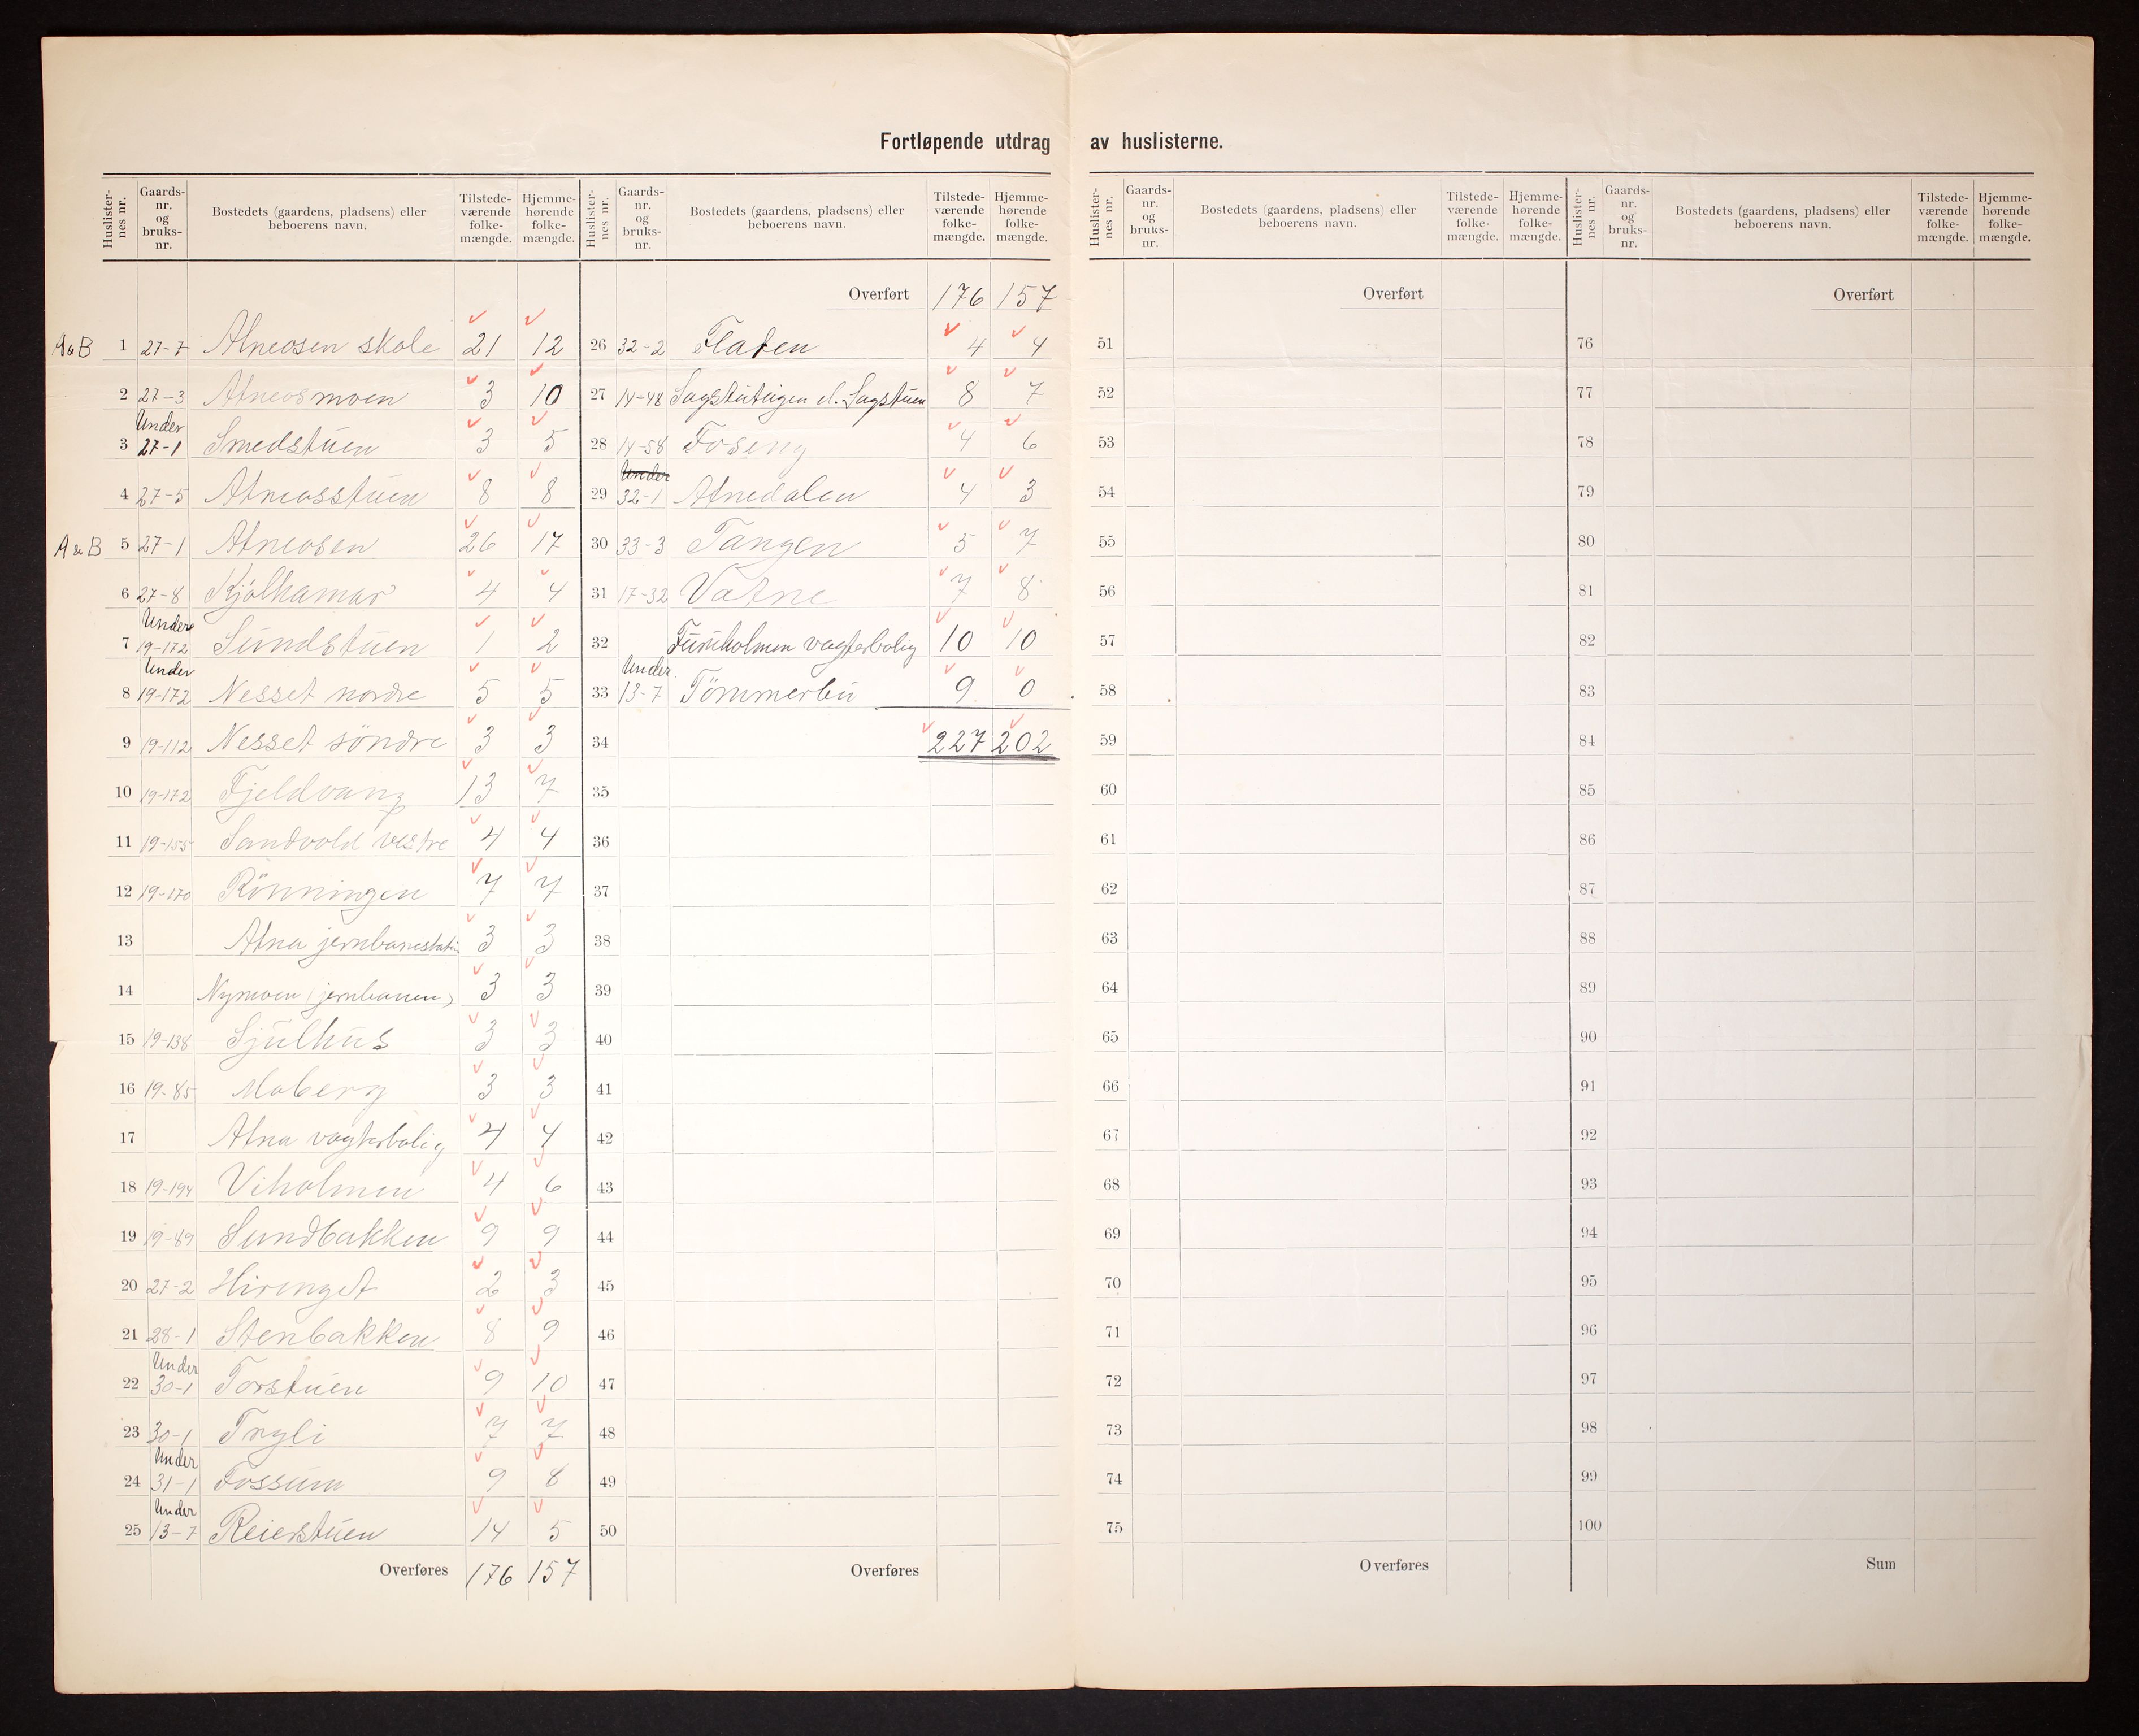 Fortløpende utdrag av huslisterne.
Huslister-nes nr. Gaards-nr. og bruks-nr. Bostedets (gaardens, pladsens) eller beboerens navn. Tilstede-værende folke-mængde. Hjemme-hørende folke-mængde.
A & B 1 27-7 Atneosen skole 21 12
2 27-3 Atneosmoen 3 10
Under
3 27-1 Smedstuen 3 5
4 27-5 Atneosstuen 8 8
A & B 5 27-1 Atneosen 26 17
6 27-8 Kjølhamar 4 4
Under
7 19-172 Sundstuen 1 2
Under
8 19-172 Nesset nordre 5 5
9 19-112 Nesset söndre 3 3
10 19-172 Fjeldvang 13 7
11 19-155 Sandvold vestre 4 4
12 19-170 Rönningen 7 7
13 Atna jernbanestation 3 3
14 Nymoen (jernbanen) 3 3
15 19-138 Sjulhus 3 3
16 19-85 Moberg 3 3
17 Atna vogterbolig 4 4
18 19-194 Viholmen 4 6
19 19-89 Sundbakken 9 9
20 27-2 Hirenget 2 3
21 28-1 Stenbakken 8 9
Under
22 30-1 Torstuen 9 10
23 30-1 Tryli 7 7
Under
24 31-1 Fossum 9 8
Under
25 13-7 Reierstuen 14 5
Overføres 176 157
Huslister-nes nr. Gaards-nr. og bruks-nr. Bostedets (gaardens, pladsens) eller beboerens navn. Tilstede-værende folke-mængde. Hjemme-hørende folke-mængde.
Overført 176 157
26 32-2 Flaten 4 4
27 14-48 Sagstuteigen el. Sagstuen 8 7
28 14-58 Foseng 4 6
Under
29 32-1 Atnedalen 4 3
30 33-3 Tangen 5 7
31 17-32 Vatne 7 8
32 Furuholmen vogterbolig 10 10
Under
33 13-7 Tömmerbu 9 0
34 227 202
35
36
37
38
39
40
41
42
43
44
45
46
47
48
49
50
Overføres
Huslister-nes nr. Gaards-nr. og bruks-nr. Bostedets (gaardens, pladsens) eller beboerens navn. Tilstede-værende folke-mængde. Hjemme-hørende folke-mængde.
Overført
51
52
53
54
55
56
57
58
59
60
61
62
63
64
65
66
67
68
69
70
71
72
73
74
75
Overføres
Huslister-nes nr. Gaards-nr. og bruks-nr. Bostedets (gaardens, pladsens) eller beboerens navn. Tilstede-værende folke-mængde. Hjemme-hørende folke-mængde.
Overført
76
77
78
79
80
81
82
83
84
85
86
87
88
89
90
91
92
93
94
95
96
97
98
99
100
Sum